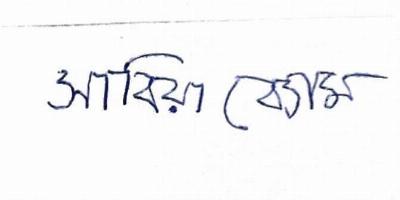 আবিয়া বেগম